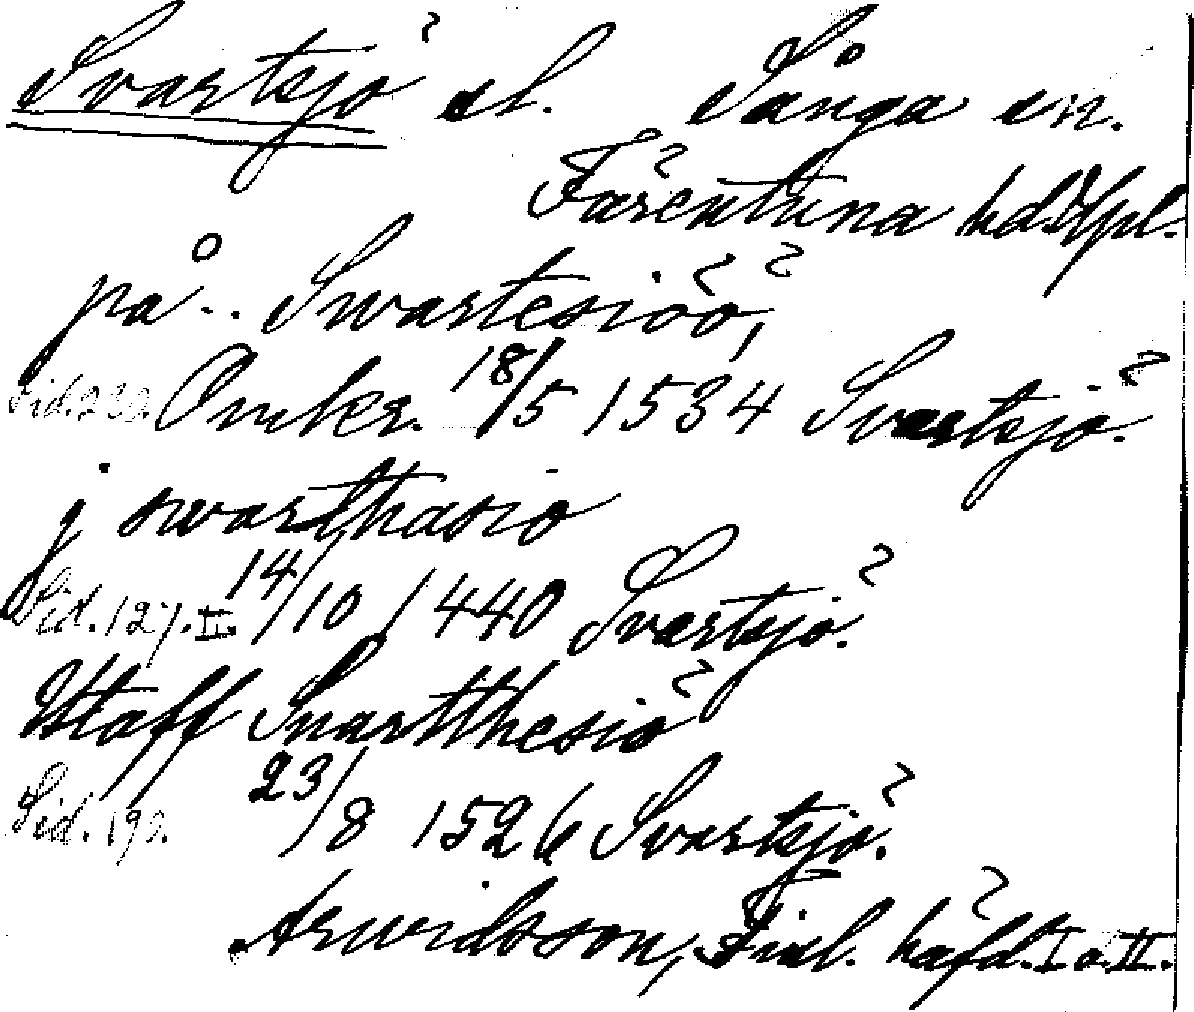 Svartsjö sl. Sånga sn.
Färentuna hd. Upl.
på .. Swartesiöö,
Omkr. 18/5 1534 Svartsjö.
j swarthasio
Sid. 127. II. 14/10 1440 Svartsjö.
Utaff Suartthesiö
Sid. 192. 23/8 1526 Svartsjö.
Arwidsson, Finl. häfd. I o. II.